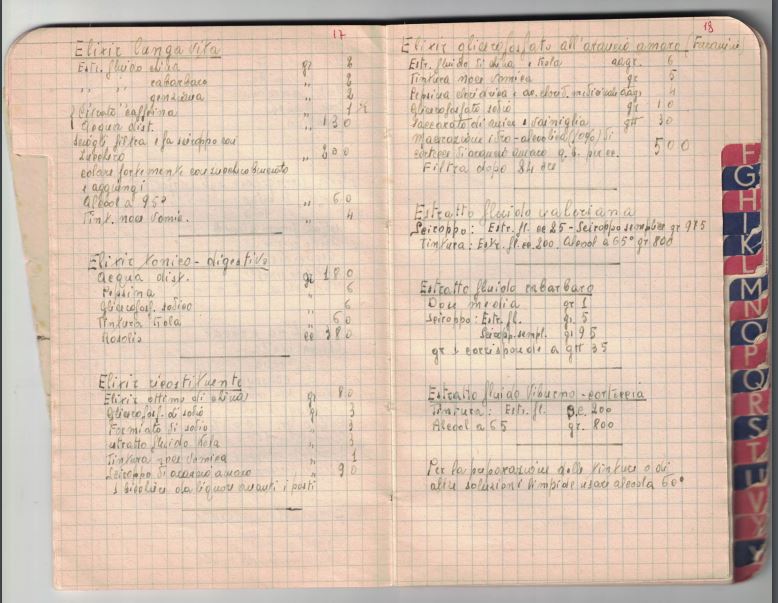 17
Elixir lunga vita
Estr. fluido china gr 2
" " rabarbaro " 2
" " genziana " 2
Citrato caffeina " 1
Acqua dist. " 130
Sciogli filtra e fa sciroppo con
zucchero " 200
colore fortemente con zucchero bruciato
e aggiungi
Alcool a 95° " 60
Tint. noce vomic. " 4
Elixir tonico-digestivo
Acqua dist. gr 180
Pepsina " 6
Glicerofosf. sodico " 6
Tintura Kola " 60
Rosolio cc 380
Elixir ricostituente
Elixir ottimo di china gr 80
Glicerofosf. di sodio gr 3
Formiato di sodio " 3
estratto fluido Kola " 3
Tintura noce vomica " 1
Sciroppo di arancio amaro " 90
liquore avanti i pasti
18
Elixir glicerofosfato all'arancio amaro
Estr. fluido di china e Kola aa gr. 6
Tintura noce vomica gr 5
Pepsina cloridrica e ac. clorid. aa gr 4
Glicerofosfato sodio gr 10
Saccarato di vainiglia gtt 30
Macerazione idro-alcoolica di
cortecce di arancio amaro q. b. per cc. 500
Filtra dopo 24 ore
Estratto fluido valeriana
Sciroppo: Estr. fl. cc 25 - Sciroppo semplice gr 975
Tintura: Estr. fl. cc. 200. Alcool a 65° gr 800
Estratto fluido rabarbaro
Dose media gr 1
Sciroppo: Estr. fl. gr. 5
Scirop. sempl. gr 95
gr 1 corrisponde a gtt 35
Estratto fluido Viburno - corteccia
Tintura: Estr. fl. c.c. 200
Alcool a 65 gr. 800
Per la preparazione delle tinture o di
altre soluzioni limpide usare alcool a 60°
F
G
H
I
K
L
M
N
O
P
Q
R
S
T
U
V